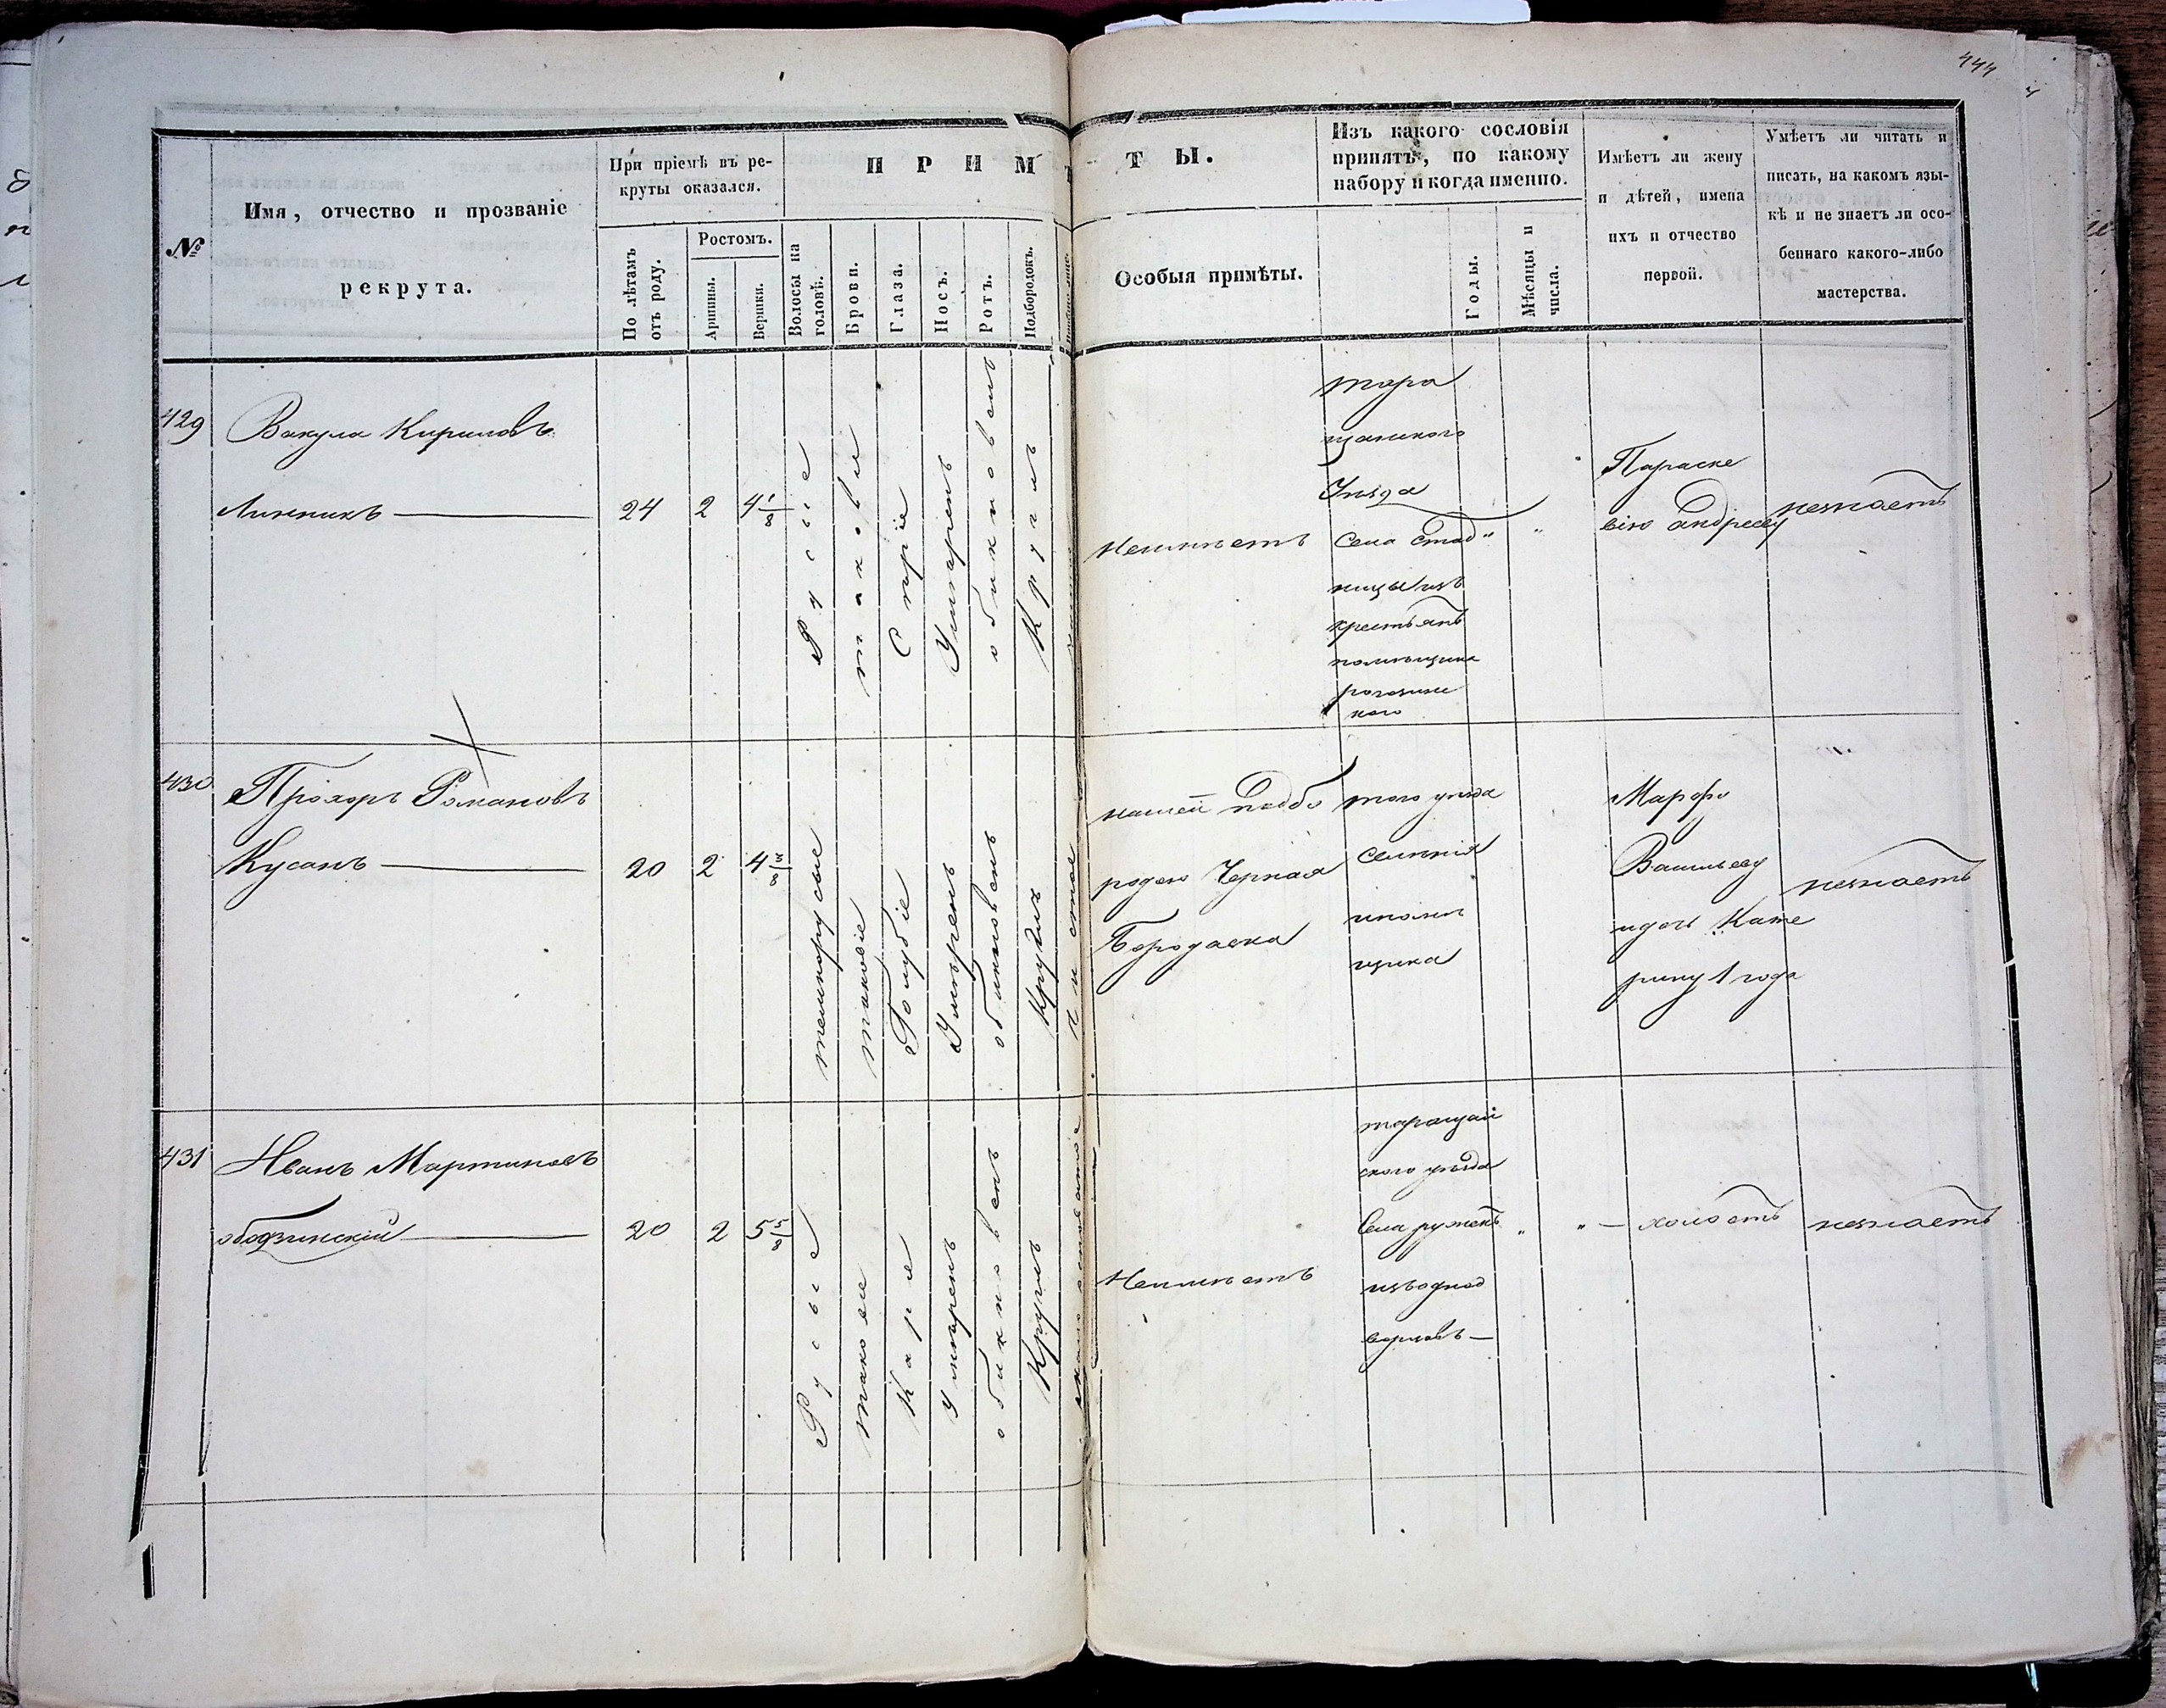 444
№
Имя, отчество и прозваніе
рекрута.
При пріемѣ въ ре-
круты оказался.
По лѣтамъ
отъ роду.
Ростомъ.
Аршины.
Вершки.
ПРИМѢ
ТЫ.
Волосы на
головѣ.
Брови.
Глаза.
Носъ.
Ротъ.
Подбородокъ.
Особыя примѣты.
Изъ какого сословія
принятъ, по какому
набору и когда именно.
Годы.
Мѣсяцы и
числа.
Имѣетъ ли жену
и дѣтей, имена
ихъ и отчество
первой.
Умѣетъ ли читать и
писать, на какомъ язы-
кѣ и не знаетъ ли осо-
беннаго какого-либо
мастерства.
429
Вакула Кириловъ
Линникъ
24
2
4 1/8
Русые
таковы
Сѣріе
Умѣренъ
обикновенъ
Круглъ
Неимѣетъ
тара
щанского
Уѣзда
Села Стад
ницы изъ
крестьянъ
помѣщика
Параске
вію Андрееву
незнаетъ
430
Прохоръ Романовъ
Кусанъ
20
2
4 3/8
темнорусые
таковіе
Голубіе
Умѣренъ
обикновенъ
Круглъ
чистое
нашей подбо
родкю Черная
Бородавка
того уѣзда
селенія
ипоми
щика
Марфу
Васильеву
идочь Кате
рину 1 года
незнаетъ
431
Иванъ Мартиновъ
ободзинскій
20
2
5 5/8
Русые
такове
Каре
Умѣренъ
обикновенъ
Круглъ
Неимѣетъ
таращан
ского уѣзда
Села ружекъ
изъоднод
ворцовъ
холостъ
незнаетъ